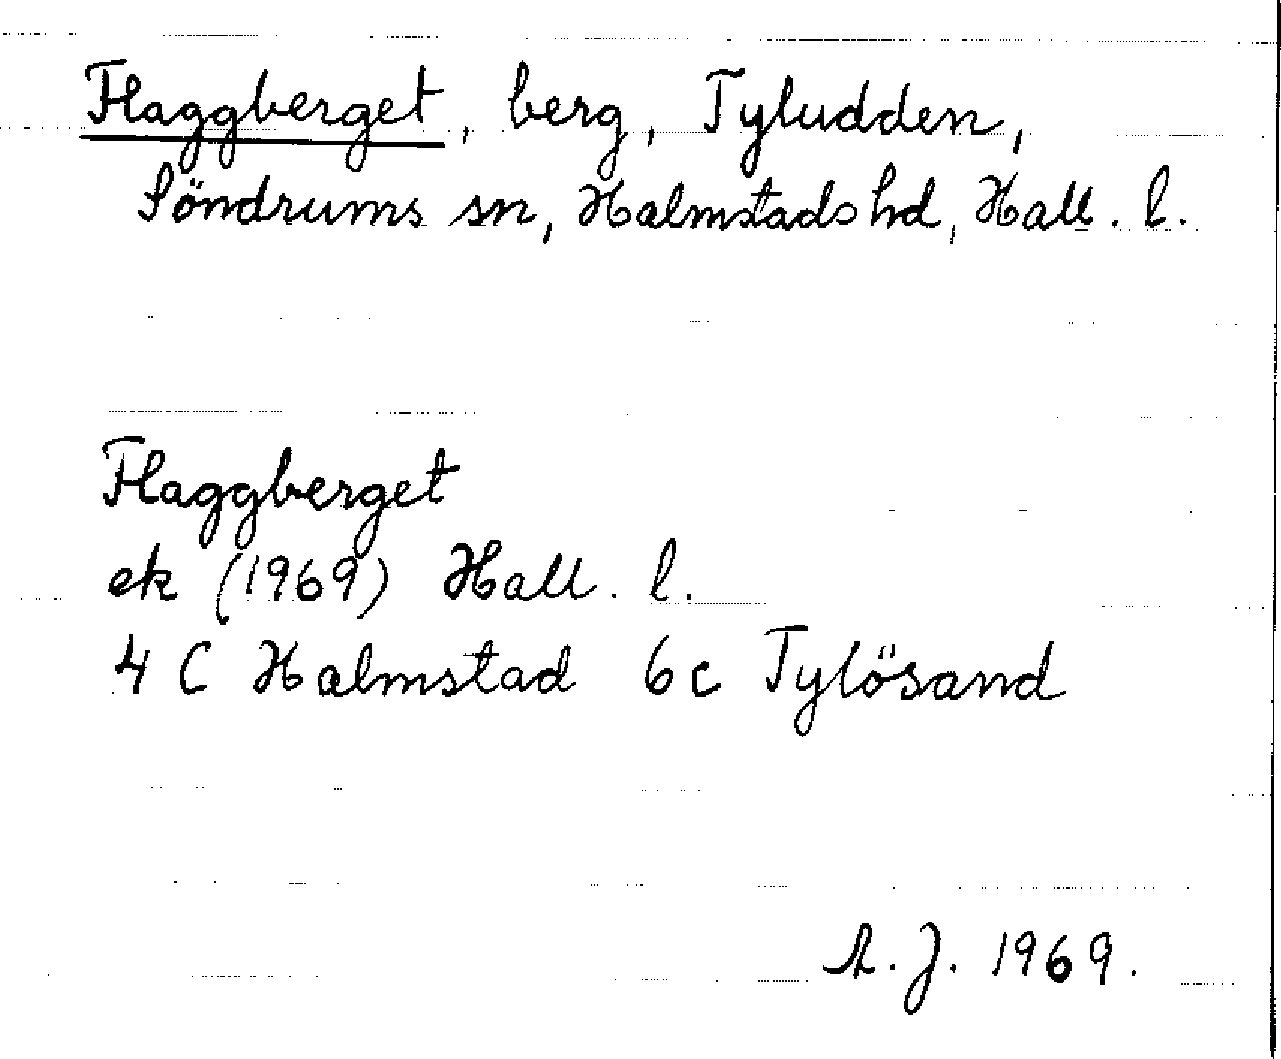 Flaggberget, berg, Tyludden,
Söndrums sn, Halmstads hd, Hall. l.
Flaggberget
ek (1969) Hall. l.
4 C Halmstad 6c Tylösand
A. J. 1969.